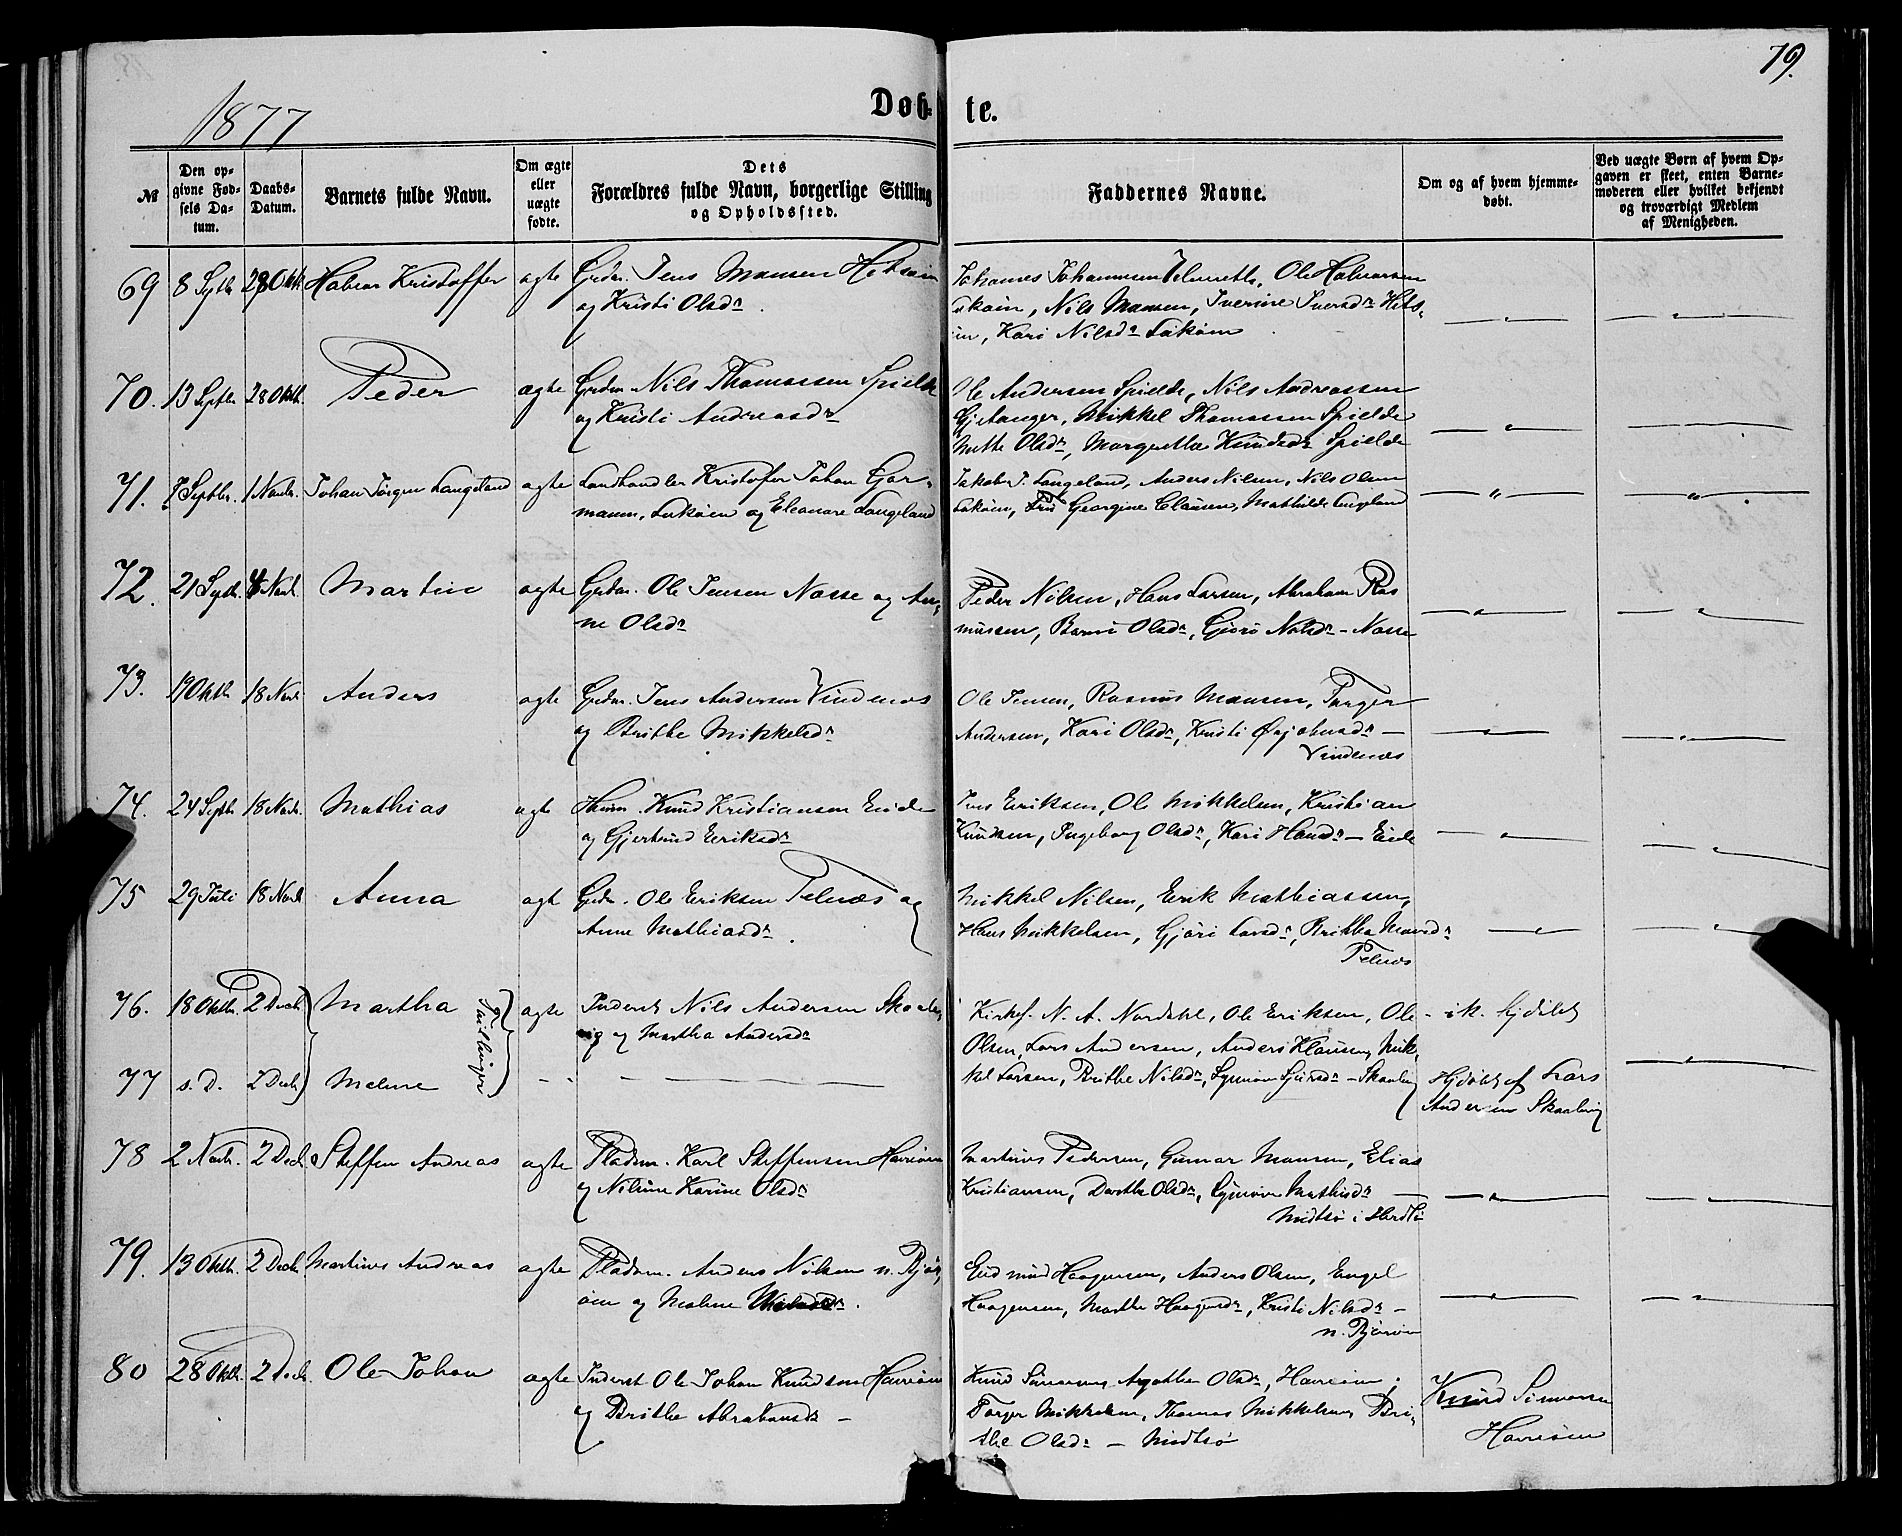 79.
1877
Døb- te.
№
Den opgivne Fødsels Datum.
Daabs-Datum.
Barnets fulde Navn.
Om ægte eller uægte fødte.
Dets Forældres fulde Navn, borgerlige Stilling og Opholdssted.
Faddernes Navne.
Om og af hvem hjemmedøbt.
Ved uægte Børn af hvem Opgaven er skeet, enten Barnemoderen eller hvilket bekjendt og troværdigt Medlem af Menigheden.
69 8 Septbr 28 Oktb. Kristoffer ægte Grdm. Jens Monsen
og Kristi Olsdr.
Nils Monsen, Iverine Iversdr
Kari Nilsdr
70. 13 Septbr 28 Oktb. Peder ægte Grdm. Nils Thomassen Spielde
og Kristi Andreasdr
Ole Andersen Spielde, Nils Andreassen
Mikkel Thomassen Spielde
Mette Olsdr, Margrethe Knudsdr Spielde
71. 8 Septbr. 1 Novbr. Johan Jørgen Langeland ægte Landhandler Kristofer Johan Gar-
mann, og Eleonore Langeland
Jakob J. Langeland, Anders Nilsen, Nils Olsen
Georgine Clausen, Mathilde Langeland
72. 21 Septb. 4 Novb. Martin ægte Grdm. Ole Jensen Nasse og An-
ne Olsdr
Peder Nilsen, Hans Larsen, Abraham Ras
mussen, Olsdr, Gjøri Nilsdr - Nasse
73. 19 Oktb. 18 Novb. Anders ægte Grdm. Jens Andersen Vindenes
og Brithe Mikkelsdr
Ole Jensen, Rasmus Monsen, Torger
Andersen, Kari Olsdr, Kristi
Vindenes
74. 24 Septbr 18 Novbr. Mathias ægte Knud Kristiansen Eide
og Gjertrud Eriksdr
Jens Eriksen, Ole Mikkelsen, Kristian
Knudsen, Ingeborg Olsdr, Kari Hansdr - Eide
75 29 Juli 18 Novb Anna ægte Grdm. Ole Eriksen Telnæs og
Anne Mathiasdr.
Mikkel Nilsen, Erik Mathiassen,
Hans Mikkelsen, Gjøri Larsdr, Brithe Monsdr
Telnes
76. 18 Oktbr. 2 Decb. Martha Tvillinger ægte Inderst Nils Andersen Skaalvig
og Martha Andersdr
Kirkes. N. A. Nordahl, Ole Eriksen, Ole
Olsen, Lars Andersen, Anders Klausen, Mik-
ik. hjdøbt
77 s. D. 2 Decb. Malene
kel Larsen, Brithe Nilsdr, Synnøve Sjursdr - Skaalvig
Hjdøbt af Lars
Andersen Skaalvig
78 2 Novb. 2 Decb. Steffen Andreas ægte Pladsm. Karl Steffensen Havreøen
og Nilsine Karine Olsdr
Martinus Pedersen, Gunnar Monsen, Elias
Kristiansen, Dorthe Olsdr, Synnøve Mathisdr
Midtsø i Herdlø
79. 13 Oktb. 2 Decb. Martinus Andreas ægte Pladsm. Anders Nilsen n. Bjør-
øen og Malene
Gudmund Haagensen, Anders Olsen, Engel
Haagensen, Marthe Haagensdr, Kristi Nilsdr -
n. Bjørøen
80 28 Oktb. 2 Decb. Ole Johan ægte Inderst Ole Johan Knudsen Havreøen
og Brithe Abrahamsdr -
Knud Simonsen, Agathe Olsdr, Havreøen;
Torger Mikkelsen, Thomas Mikkelsen, Bri-
the Olsdr - Midtsø
Knud Simonsen
Havreøen